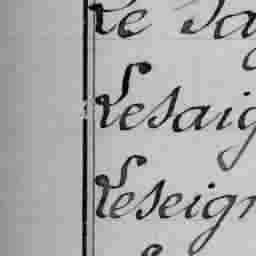 Le Sa
Lesaig
Leseign